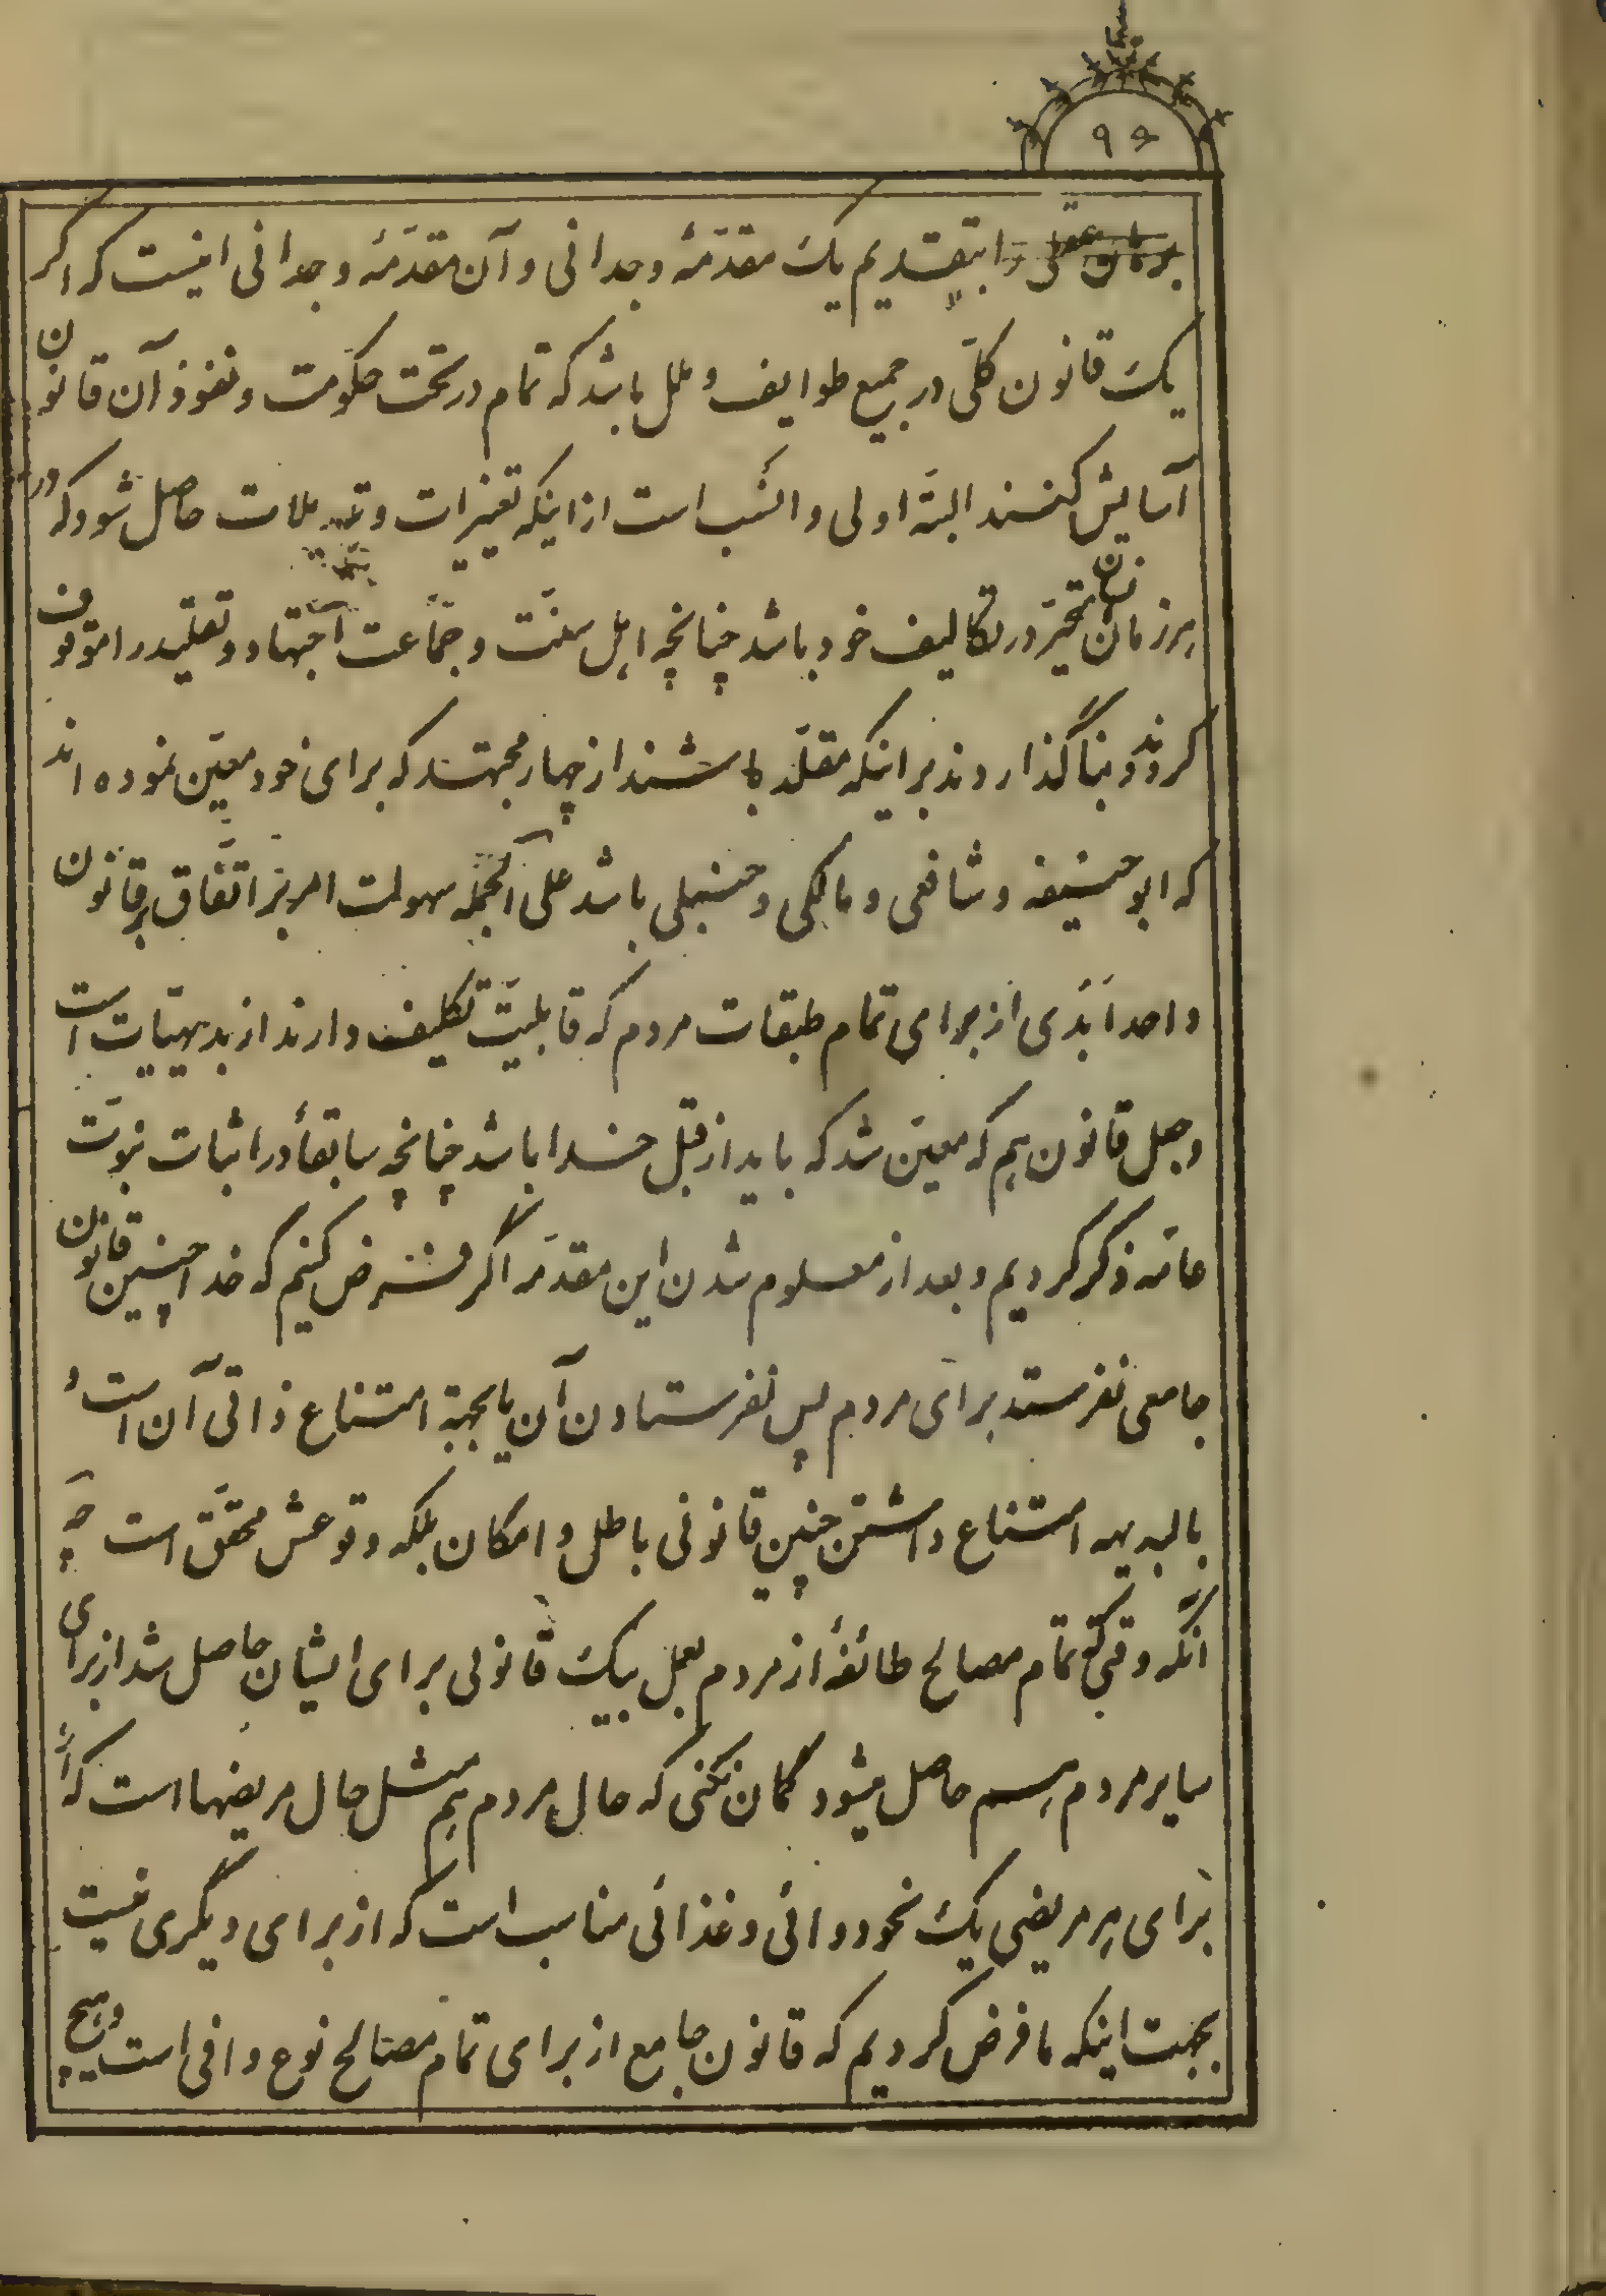 ۹۶
برهان عقلی را بتقدیم یک مقدمهٔ وجدانی و آن مقدّمهٔ وجدانی اینست که اگر
یک قانون کلّی در جمیع طوایف و ملل باشد که تمام در تحت حکومت و نفوذ آن قانون
آسایش کنند البتّه اولی و انسب است از اینکه تغییرات و تبدیلات حاصل شود که در
هر زمان متحیّر در تکالیف خود باشند چنانچه اهل سنّت و جماعت اجتهاد و تقلید را موقوف
کردند و بنا گذاردند بر اینکه مقلّد باشند از چهار مجتهد که برای خود معیّن نموده اند
که ابوحنیفه و شافعی و مالکی و حنبلی باشد علی الجمله سهولت امر بر اتّفاق بر قانون
واحد اَبَدی از برای تمام طبقات مردم که قابلیّت تکلیف دارند از بدیهیّات است
و جعل قانون هم که معیّن شد که باید از قبل خدا باشد چنانچه سابقاً در اثبات نبوّت
عامّه ذکر کردیم و بعد از معلوم شدن این مقدّمه اگر فرض کنیم که خدا چنین قانون
جامعی نفرستد برای مردم پس نفرستادن آن یا بجهة امتناع ذاتی آن است و
بالبدیهه امتناع داشتن چنین قانونی باطل و امکان بلکه وقوعش محقّق است چه
آنکه وقتی که تمام مصالح طائفهٔ از مردم بعمل بیک قانونی برای ایشان حاصل شد از برای
سایر مردم هم حاصل میشود گمان نکنی که حال مردم هم مثل حال مریضها است که از
برای هر مریضی یک نحو دوائی و غذائی مناسب است که از برای دیگری نیست
بجهت اینکه ما فرض کردیم که قانون جامع از برای تمام مصالح نوع وافی است و هیچ